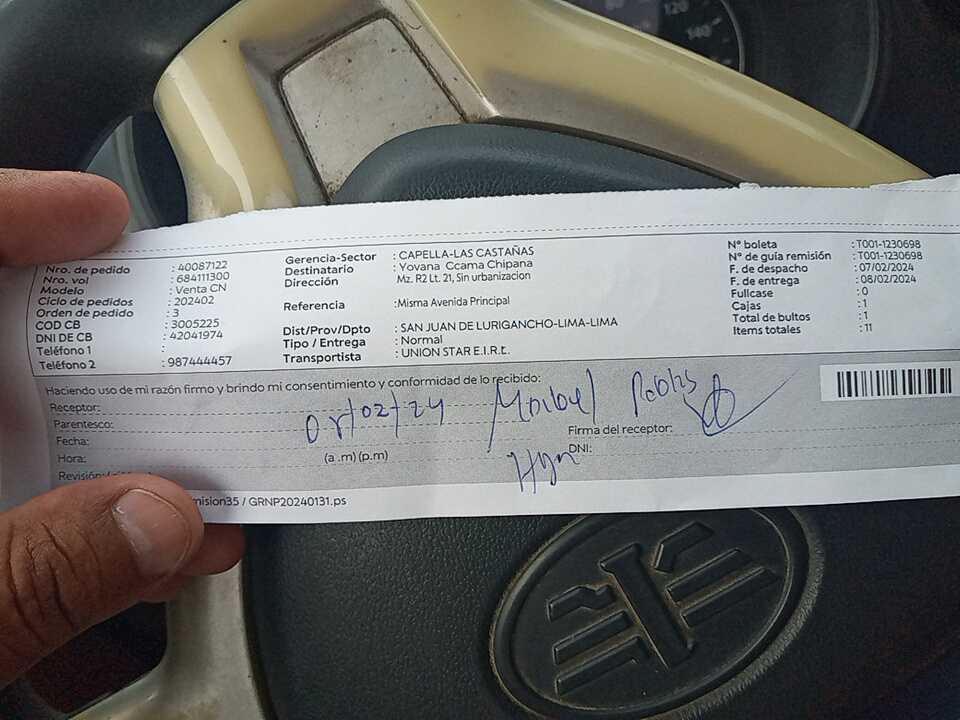 Nro. de pedido : 40087122
Nro. vol : 684111300
Modelo : Venta CN
Ciclo de pedidos : 202402
Orden de pedido : 3
COD CB : 3005225
DNI DE CB : 42041974
Teléfono 1 :
Teléfono 2 : 987444457
Gerencia-Sector : CAPELLA-LAS CASTAÑAS
Destinatario : Yovana Ccama Chipana
Dirección : Mz. R2 Lt. 21, Sin urbanizacion
Referencia :Misma Avenida Principal
Dist/Prov/Dpto : SAN JUAN DE LURIGANCHO-LIMA-LIMA
Tipo / Entrega : Normal
Transportista : UNION STAR E.I.R.L.
N° boleta : T001-1230698
N° de guía remisión : T001-1230698
F. de despacho : 07/02/2024
F. de entrega : 08/02/2024
Fullcase : 0
Cajas : 1
Total de bultos : 1
Items totales : 11
Haciendo uso de mi razón firmo y brindo mi consentimiento y conformidad de lo recibido:
Receptor:
Parentesco:
Fecha:
Hora: (a .m) (p.m)
Revisión
Firma del receptor:
DNI:
mision35 / GRNP20240131.ps
120
140